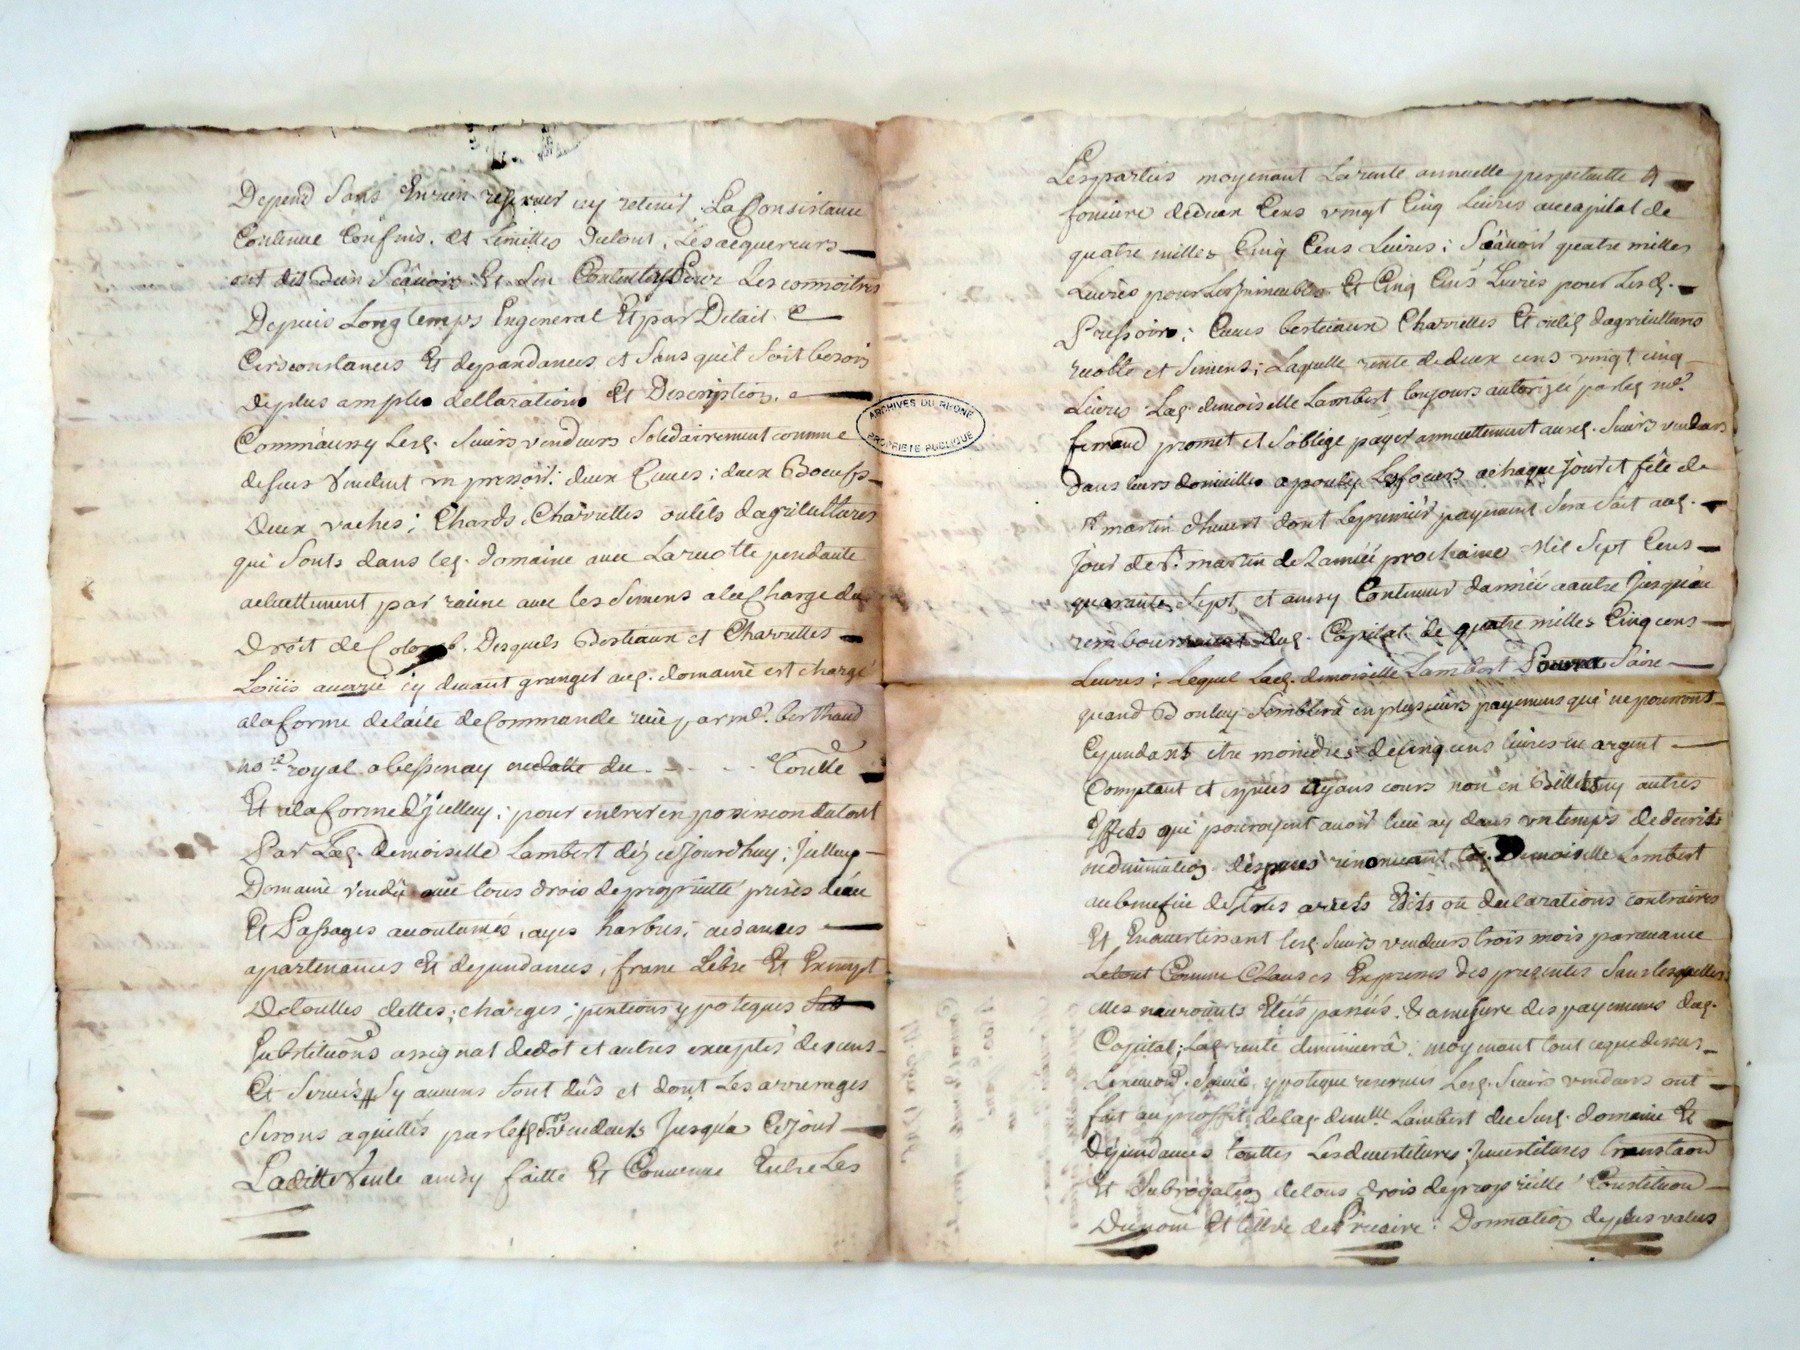 Depend Sans En rien reserver ny retenir, La Consistance
Continue Confins, et Limittes Dutout, Les acquereurs
ont dit Bien Scavoir Et Sen Contenter Pour Les connoitres
Depuis Longtemps En general Et par Detail
Circonstances Et depandances et Sans quil Soit besoin
de plus amples declarations Et Description.
Comm'aussy Lesd. Sieurs vendeurs Solidairement comme
dessus Vendent un pressoir: deux Cuves; deux Boeufs
deux vaches; Chards, Charrettes outils dagricultures
qui Sonts dans led. domaine avec La recolte pendante
actuellement par racine avec les Semens a la Charge du
Droit de Colon. Desquels Bestiaux et Charrettes
Loüis cy devant granger aud. domaine est chargé
a la forme de lacte de Commande reçu par me. berthaud
no.re royal a bessenay en datte du - - - - Toutte
Et a la forme d'Jcelluy; pour entrer en possession dutout
Par Lad. demoiselle Lambert dez cejourdhuy; Jcelluy
Domaine vendu avec tous drois de proprietté prises deau
Et Passages accoutumés, ayes harbres; aisances
apartenances Et dependances, franc Libre Et Exempt
De touttes dettes; charges; pentions ypoteques
Substitutions assignat de dot et autres exceptés des cens
Et Servis Sy aucuns Sont dûs et dont Les arrerages
Serons aquittés par lesd. Srs vendeurs Jusqu'a Cejour
Laditte Vente ainsy faitte Et Convenue Entre Les
Les parties moyenant La rente annuelle perpetuelle et
fonciere de deux Cens vingt Cinq Livres au capital de
quatre milles Cinq Cens Livres; Scavoir quatre milles
Livres pour Les Jmmeubles Et Cinq Cens Livres pour Lesd.
Pressoirs; Cuves bestiaux Charrettes Et outils dagricultures
recolte et Semens; Laquelle rente de deux cens vingt cinq
Livres Lad. demoiselle Lambert toujours autorizée par led. me.
ferraud promet et Soblige payer annuellement ausd. Sieurs vendeurs
Dans leurs domicilles a chaque Jour et fête de
St martin dhivert dont Le premier payement Sera fait aud.
Jour de St. martin de L'année prochaine Mil Sept Cens
quarante Sept et ainsy Continuer d'année a autre Jusqu'au
remboursement dud. Capital de quatre milles Cinq cens
Livres; Lequel Lad. demoiselle Lambert Pourra Faire
quand Bon luy Semblera en plusieurs payemens qui ne pourront
Cependant être moindres de cinq cens livres en argent
Comptant et espèces ayans cours non en Billets ny autres
Effets qui pouroyent avoir lieu ny dans un temps de decrits
ou diminution despeces renoncant lad. Demoiselle Lambert
au benefice de Tous arrets Edits ou declarations contraires
Et En avertissant lesd. Sieurs vendeurs trois mois paravance
Letout Comme Clauses Expresses des presentes Sans lesquelles
elles nauroients Etés passés. & a mesure des payemens dud.
Capital; Lad rente diminuera. moyenant tout ceque dessus
ypoteque reservés Lesd. Sieurs vendeurs ont
fait au proffit de lad. demlle. Lambert du Susd. domaine Et
Dépendances Touttes Les devestitures; Jnvestitures translaon
Et Subrogation de tous drois de proprietté Constitution
Du nom Et tittre de Précaire: Donnation de plus values
ARCHIVES DU RHÔNE
PROPRIÉTÉ PUBLIQUE